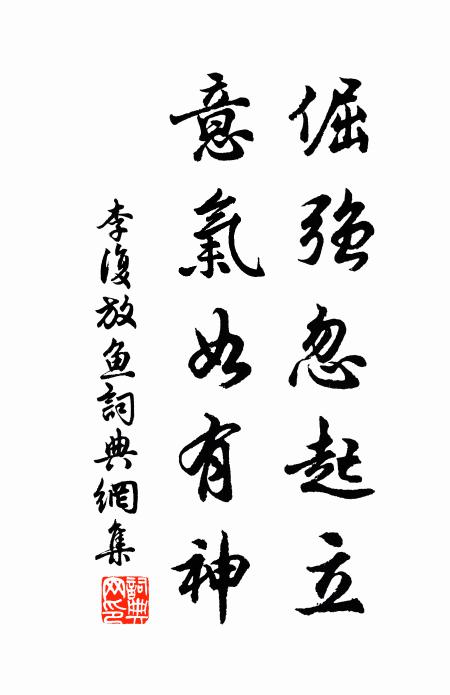 倔强忽起立
意氣如有神
李復放魚詞典網集
詞典網印